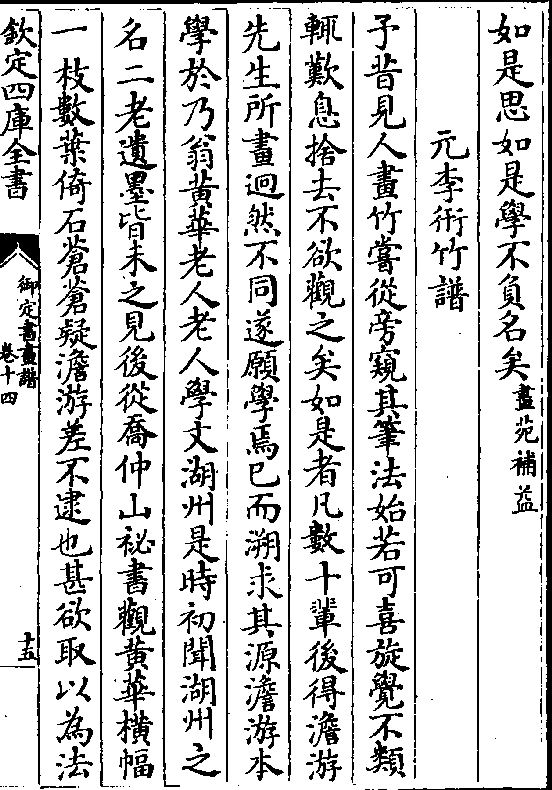 如是思如是學不負名矣畫苑補益
元李衎竹譜
予昔見人畫竹嘗從旁窺其筆法始若可喜旋覺不類
輒歎息捨去不欲觀之矣如是者凡數十輩後得澹游
先生所畫迥然不同遂願學焉已而溯求其源澹游本
學於乃翁黃華老人老人學文湖州是時初聞湖州之
名二老遺墨皆未之見後從喬仲山祕書觀黃華橫幅
一枝數葉倚石蒼蒼疑澹游差不逮也甚欲取以為法
欽定四庫全書
御定書畫譜
卷十四
十五